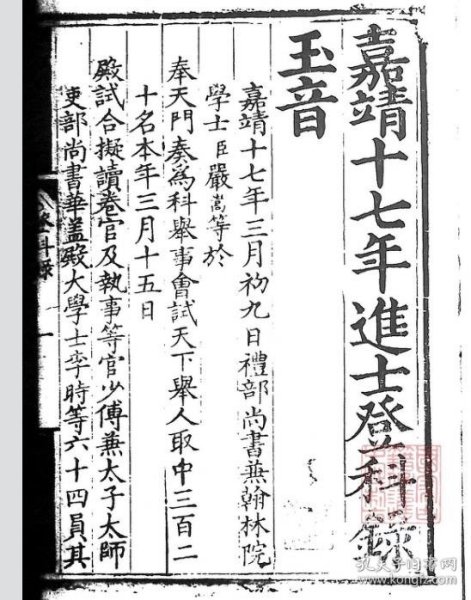 嘉靖十七年進士登科錄
玉音
嘉靖十七年三月初九日禮部尚書兼翰林院
學士臣嚴嵩等於
奉天門奏為科舉事會試天下舉人取中三百二
十名本年三月十五日
殿試合擬讀卷官及執事等官少傅兼太子太師
吏部尚書華盖殿大學士李時等六十四員其
登科錄
孔夫子旧书网
www.kongfz.com